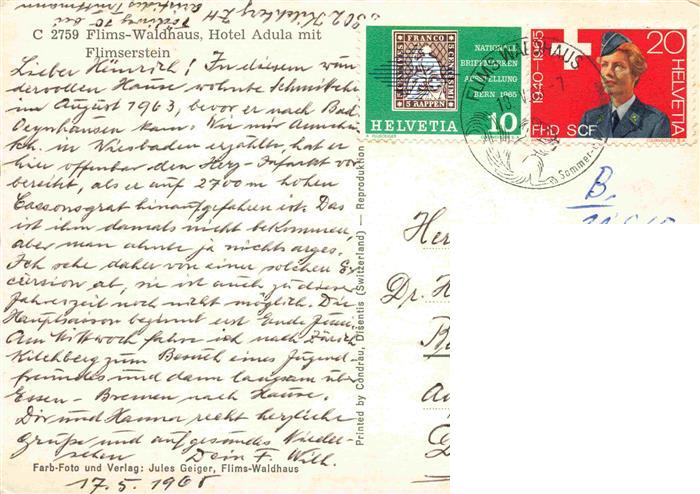 8802 Kilchberg ZH
bei
C 2759 Flims-Waldhaus, Hotel Adula mit
Flimserstein
Lieber Heinrich! In diesem wun-
dervollen Hause wohnte Schmittke
im August 1963, bevor er nach Bad
Oeynhausen kam. Wie mir
in Wiesbaden erzählte, hat er
hier offenbar den Herz-Infarkt vor
bereitet, als er auf 2700 m hohen
Cassonsgrat hinaufgefahren ist. Das
ist ihm damals nicht bekommen,
aber man ahnte ja nichts arges.
Ich sehe daher von einer solchen Ex
cursion ab, sie ist auch zu dieser
Jahreszeit noch nicht möglich. Die
Hauptsaison beginnt erst Ende Juni.
Am Mittwoch fahre ich nach Zürich
Kilchberg zum Besuch eines Jugend-
freundes und dann langsam über
Essen - Bremen nach Hause.
Dir und Hanna recht herzliche
Grüße und auf gesundes Wieder-
sehen Dein F. Will.
Farb-Foto und Verlag: Jules Geiger, Flims-Waldhaus
17.5.1965
Printed by Condrau, Disentis (Switzerland) — Reproduktion
FRANCO
5 RAPPEN
NATIONALE
BRIEFMARKEN
AUSSTELLUNG
BERN 1965
HELVETIA 10
1940-1965
20
HELVETIA
FHD SCF
FLIMS-WALDHAUS
Sommer-
B.
Her
Dr. H